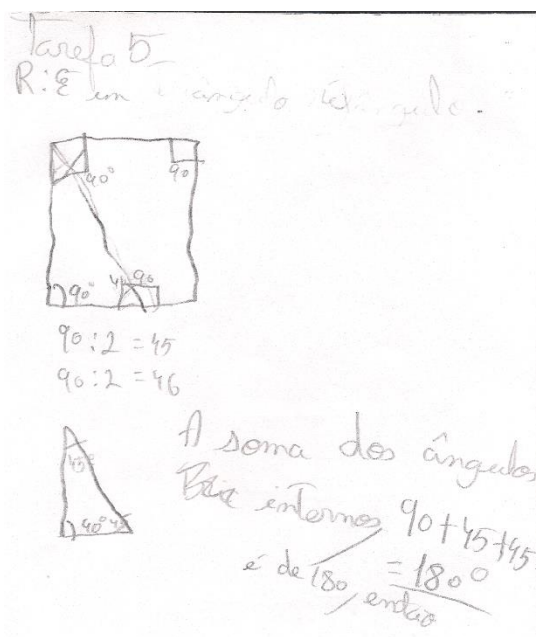 Tarefa 5
R: É um triângulo retângulo.
90°
90
90
90°
90:2 = 45
90:2 = 46
45°
90° 45
A soma dos ângulos
internos 90+45+45
é de 180, = 180°
endão